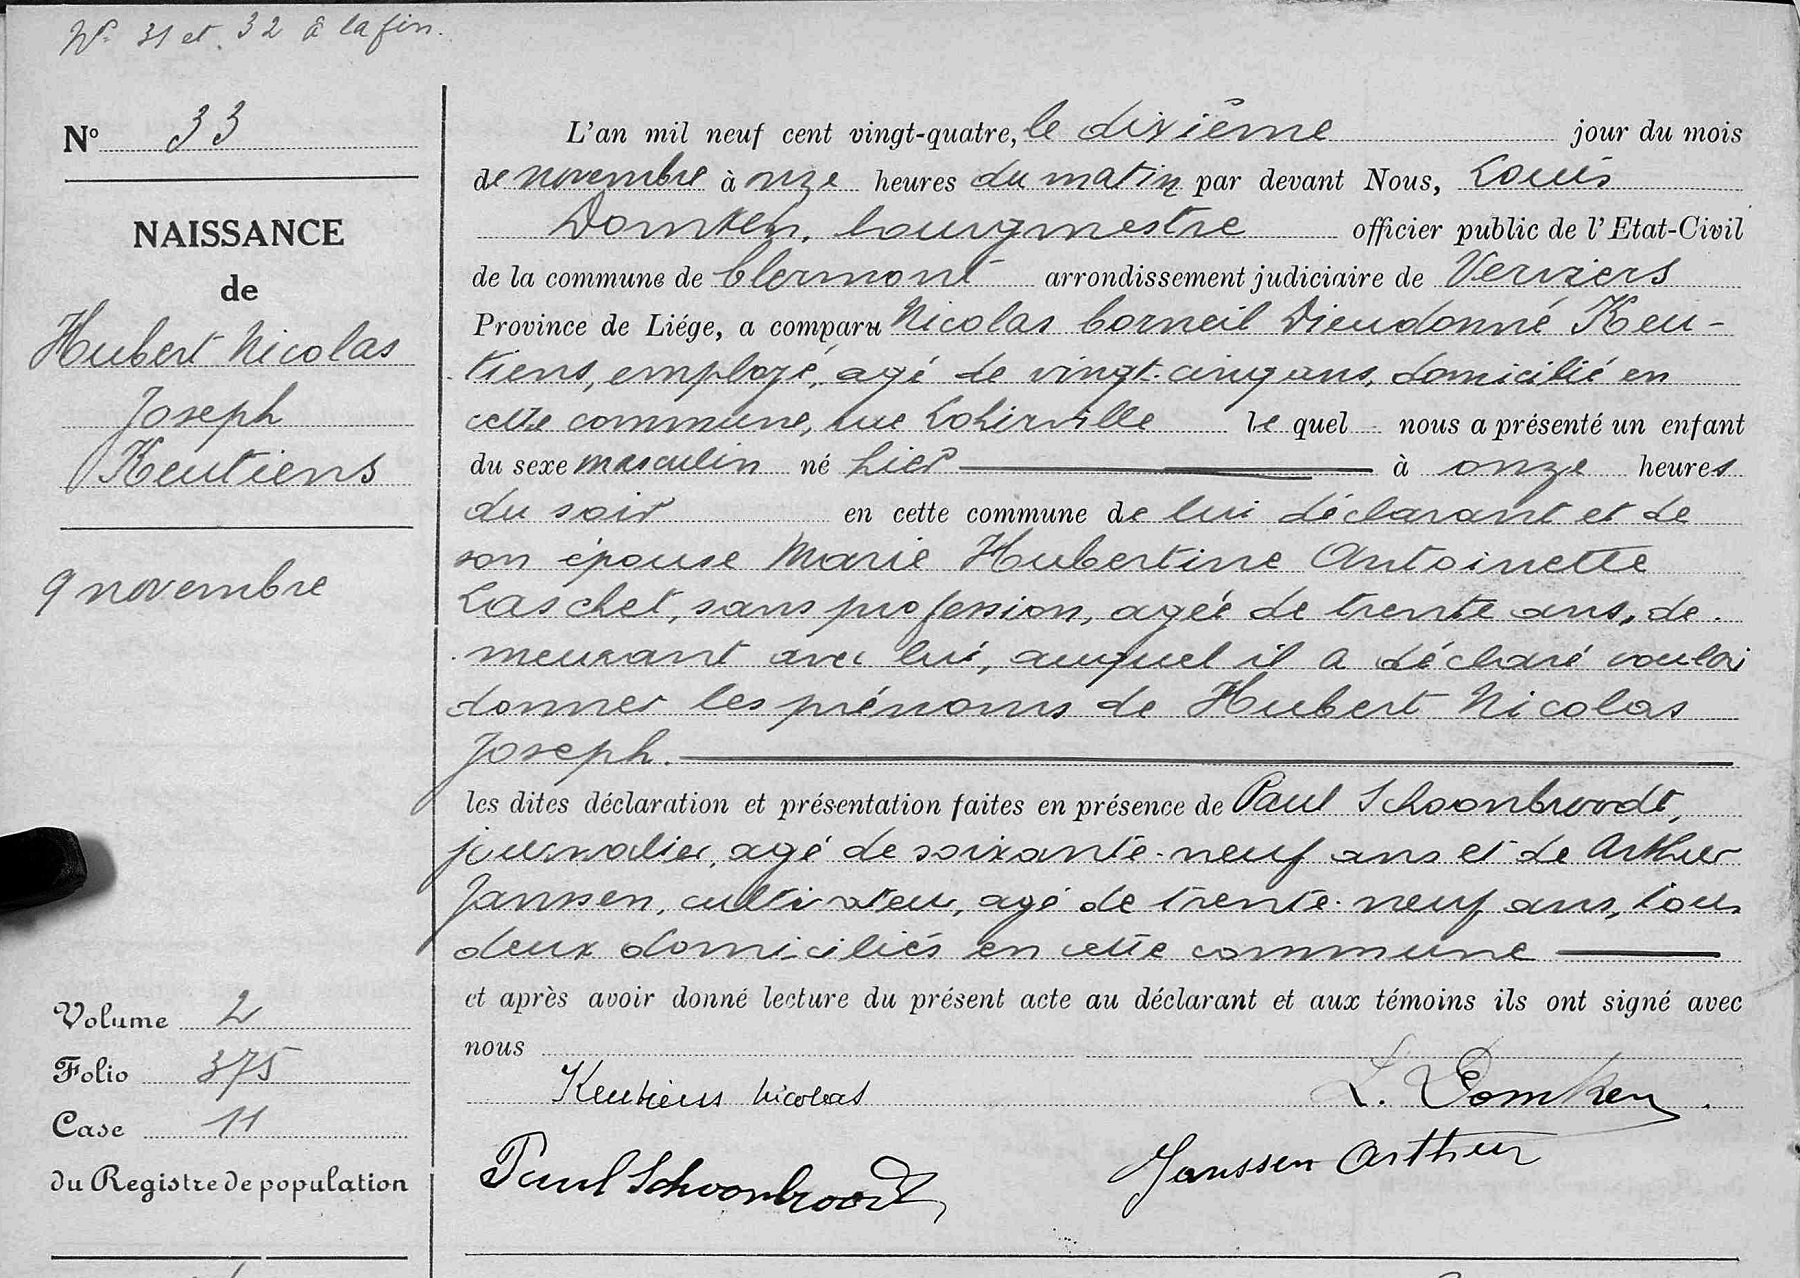 N° 31 et 32 à la fin.
N° 33
NAISSANCE
de
Hubert Nicolas
Joseph
Keutiens
9 novembre
Volume 2
Folio 375
Case 11
du Registre de population
L'an mil neuf cent vingt-quatre, le dixième jour du mois
de novembre à onze heures du matin par devant Nous, Louis
Domken, bourgmestre officier public de l'Etat-Civil
de la commune de Clermont arrondissement judiciaire de Verviers
Province de Liége, a comparu Nicolas Corneil Dieudonné Keu-
tiens, employé, agé de vingt-cinq ans, domicilié en
cette commune, rue Lohirville le quel nous a présenté un enfant
du sexe masculin né hier à onze heures
du soir en cette commune de lui déclarant et de
son épouse Marie Hubertine Antoinette
Laschet, sans profession, agée de trente ans, de-
meurant avec lui, auquel il a déclaré vouloir
donner les prénoms de Hubert Nicolas
Joseph.
les dites déclaration et présentation faites en présence de Paul Schoonbroodt,
journalier, agé de soixante-neuf ans et de Arthur
Janssen, cultivateur, agé de trente-neuf ans, tous
deux domiciliés en cette commune
et après avoir donné lecture du présent acte au déclarant et aux témoins ils ont signé avec
nous
Keutiens Nicolas L. Domken.
Paul Schoonbroodt Janssen Arthur